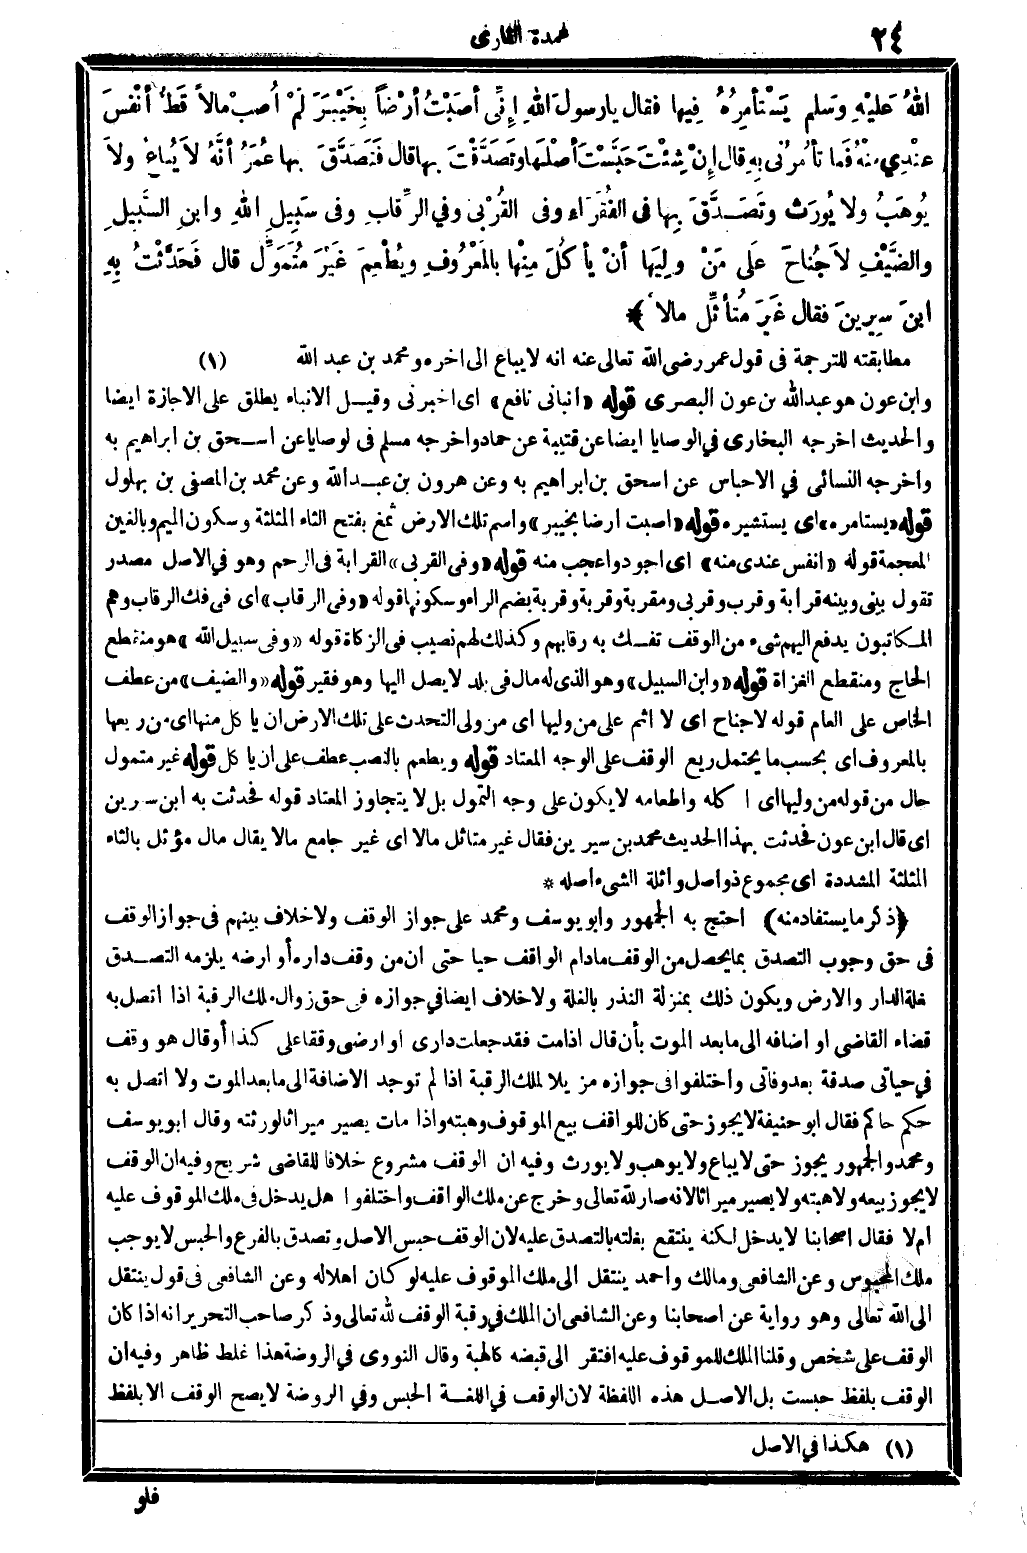 ٢٤
عمدة القارى
اللهُ عَلَيْهِ وَسَلم يَسْتَأمِرُهُ فِيها فقال يارسولَ اللهِ إنِّى أصَبْتُ أرْضاً بِخَيْبَرَ لَمْ أُصِبْ مالاً قَطُّ أنْفَسَ
عنْدِي مِنْهُ فَما تَأمُرُنى بِهِ قال إنْ شِئْتَ حَبَّسْتَ أصْلَهَا وتَصَدَّقْتَ بِها قال فَتَصَدَّقَ بِها عُمَرُ أنَّهُ لاَ يُباعُ ولاَ
يُوهَبُ ولا يُورَث وتَصَـدَّقَ بِها فى الفُقَرَاءِ وفى القُرْبَى وفي الرِّقاب وفى سَبِيلِ اللهِ وابنِ السَّبِيلِ
والضَّيْفِ لاَ جُناحَ علَى مَنْ ولِيَها أنْ يأ كُلَ مِنْها بالمَعْرُوفِ ويُطْعِمَ غَيْرَ مُتَمَوِّلٍ قال فَحَدَّثْتُ بِهِ
ابنَ سِيرينَ فقال غَيْرَ مُتأَثِّلٍ مالاً ﴾
مطابقته للترجمة فى قول عمر رضى الله تعالى عنه انه لا يباع الى اخره ومحمد بن عبد الله (١)
وابن عون هو عبدالله بن عون البصرى قوله «انبانى نافع» اى اخبرنى وقيـل الانباء يطلق على الاجازة ايضا
والحديث اخرجه البخارى في الوصايا ايضا عن قتيبة عن حماد واخرجه مسلم فى لوصايا عن اسـحق بن ابراهيم به
واخرجه النسائى في الاحباس عن اسحق بن ابراهيم به وعن هرون بن عبـد الله وعن محمد بن المصفى بن بهلول
قوله «يستامره» اى يستشيره قوله «اصبت ارضا بخيبر» واسم تلك الارض ثمغ بفتح الثاء المثلثة وسكون الميم وبالغين
المعجمة قوله «انفس عندى منه» اى اجود واعجب منه قوله «وفى القربى» القرابة فى الرحم وهو في الاصل مصدر
تقول بينى وبينه قرابة وقرب وقربى ومقربة وقربة وقربة بضم الراء وسكونها قوله «وفى الرقاب» اى فى فك الرقاب وهم
المكاتبون يدفع اليهم شىء من الوقف تفـك به رقابهم وكذلك لهم نصيب فى الزكاة قوله «وفى سبيل الله» هو منقطع
الحاج ومنقطع الغزاة قوله «وابن السبيل» وهو الذى له مال فى بلد لا يصل اليها وهو فقير قوله «والضيف» من عطف
الخاص على العام قوله لا جناح اى لا اثم على من وليها اى من ولى التحدث على تلك الارض ان يا كل منها اى من ريعها
بالمعروف اى بحسب ما يحتمل ريع الوقف على الوجه المعتاد قوله ويطعم بالنصب عطف على ان يا كل قوله غير متمول
حال من قوله من وليها اى ا كله واطعامه لا يكون على وجه التمول بل لا يتجاوز المعتاد قوله فحدثت به ابن سرين
اى قال ابن عون فحدثت بهذا الحديث محمد بن سيرين فقال غير متاثل مالا اى غير جامع مالا يقال مال مؤثل بالثاء
المثلثة المشددة اى مجموع ذو اصل واثلة الشىء اصله *
﴿ذكر ما يستفاد منه﴾ احتج به الجمهور وابو يوسف ومحمد على جواز الوقف ولا خلاف بينهم فى جواز الوقف
فى حق وجوب التصدق بما يحصل من الوقف مادام الواقف حيا حتى ان من وقف داره أو ارضه يلزمه التصـدق
بغلة الدار والارض ويكون ذلك بمنزلة النذر بالغلة ولا خلاف ايضا في جوازه فى حق زوال ملك الرقبة اذا اتصل به
قضاء القاضى او اضافه الى ما بعد الموت بأن قال اذا مت فقد جعلت دارى او ارضى وقفا على كذا أو قال هو وقف
في حياتى صدقة بعد وفاتى واختلفوا فى جوازه مزيلا لملك الرقبة اذا لم توجد الاضافة الى ما بعد الموت ولا اتصل به
حكم حاكم فقال ابو حنيفة لا يجوز حتى كان للواقف بيع الموقوف وهبته واذا مات يصير ميراثا لورثته وقال ابو يوسف
ومحمد والجمهور يجوز حتى لا يباع ولا يوهب ولا يورث وفيه ان الوقف مشروع خلافا للقاضى شريح وفيه ان الوقف
لا يجوز بيعه ولا هبته ولا يصير ميراثا لانه صار لله تعالى وخرج عن ملك الواقف واختلفوا هل يدخل فى ملك الموقوف عليه
ام لا فقال اصحابنا لا يدخل لكنه ينتفع بغلته بالتصدق عليه لان الوقف حبس الاصل وتصدق بالفرع والحبس لا يوجب
ملك المحبوس وعن الشافعى ومالك واحمد ينتقل الى ملك الموقوف عليه لو كان اهلا له وعن الشافعى فى قول ينتقل
الى الله تعالى وهو رواية عن اصحابنا وعن الشافعى ان الملك في رقبة الوقف لله تعالى وذكر صاحب التحرير انه اذا كان
الوقف على شخص وقلنا الملك للموقوف عليه افتقر الى قبضه كالهبة وقال النووى في الروضة هذا غلط ظاهر وفيه ان
الوقف بلفظ حبست بل الاصـل هذه اللفظة لان الوقف في اللغـة الحبس وفي الروضة لا يصح الوقف الا بلفظ
(١) هكذا في الاصل
فلو